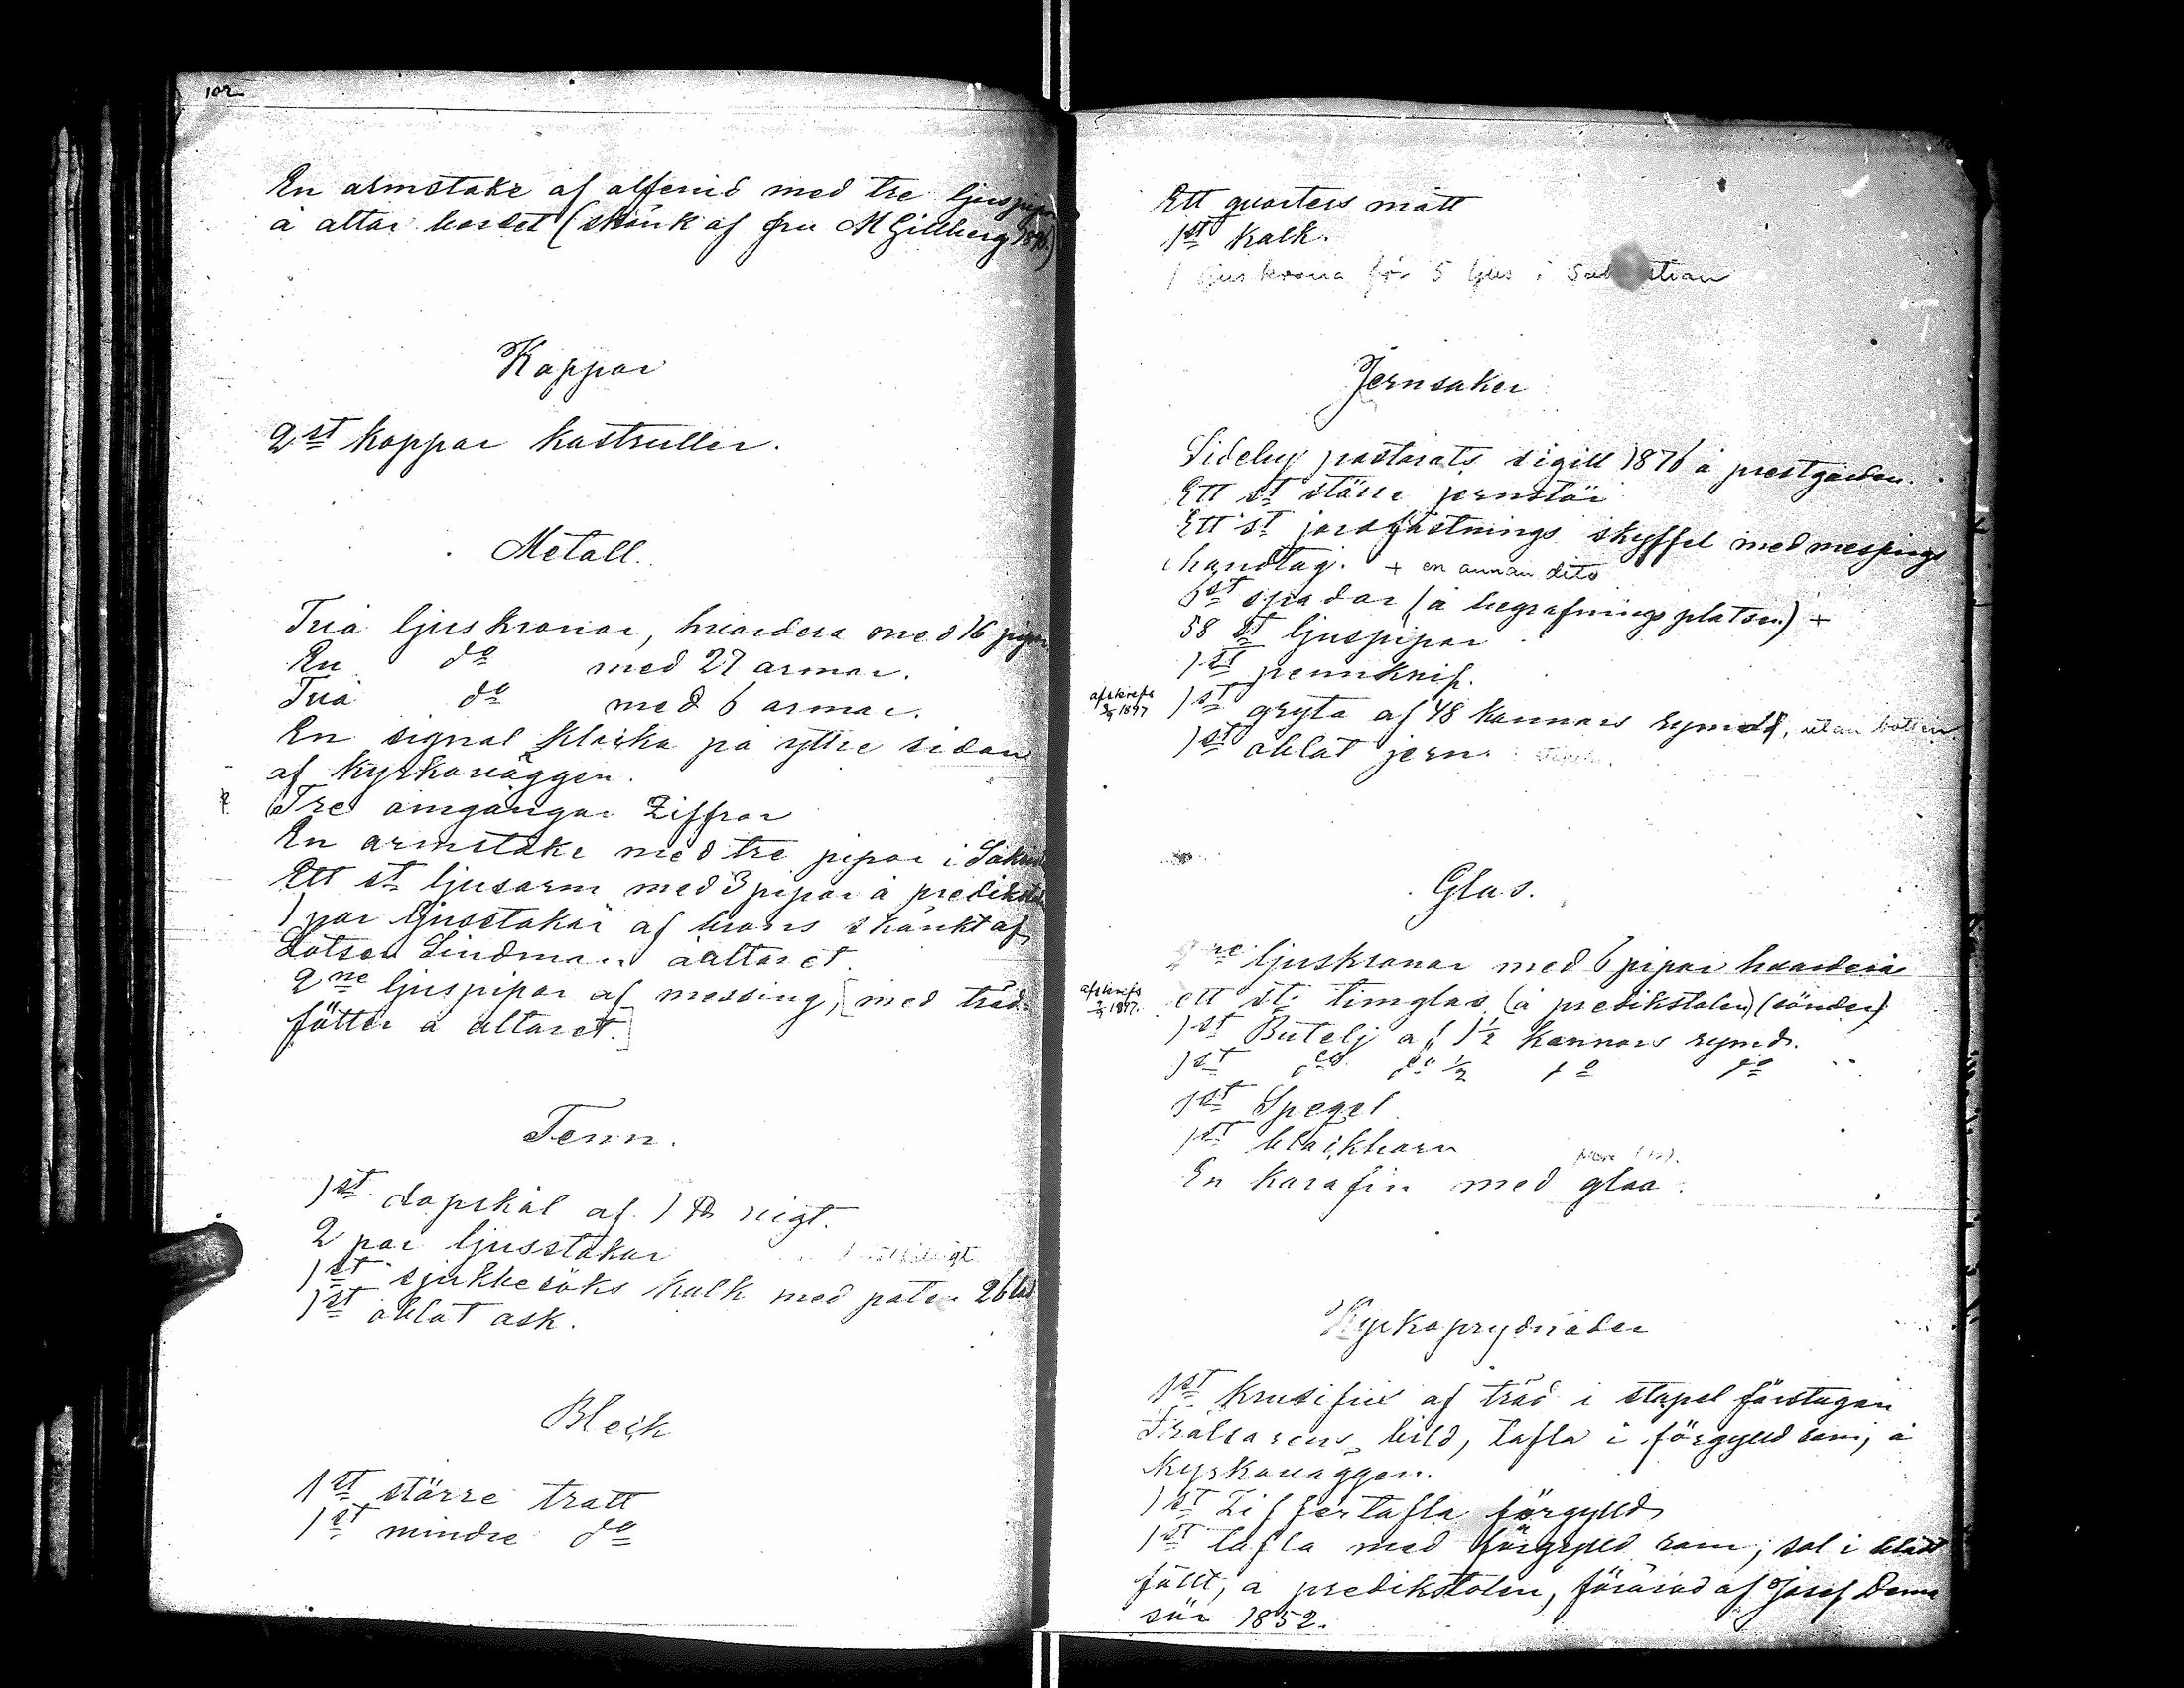 102
En armstake af alfenid med tre ljuspipar
å altar bordet (skänk af fru M Gillberg 1896)
Koppar
2 st koppar kastruller.
Metall.
Två ljuskronor, hvardera med 16 pipor
En do med 27 armar.
Två do med 6 armar.
En signal klocka på yttre sidan
af kyrkoväggen.
Tre omgångar Ziffror
En armstake med tre pipor i
Ett st ljusarm med 3 pipor å predikstolen
1 par ljusstakar af brons skänkt af
Lotsen Lindman å altaret.
2ne ljuspipor af messing, [med träd-
fötter å altaret.]
Tenn.
1 st dopskål af 1 ℔ vigt.
2 par ljusstakar
1 st sjukbesöks kalk med paten 26 lod
1 st oblat ask.
Bleck
1 st större tratt
1 st mindre do
Ett qvarters mått
1 st kalk.
1 ljuskrona för 5 ljus i Sakristian
Jernsaker
Sideby pastorats sigill 1876 å prestgården.
Ett st större jernstör
Ett st jordfästnings skyffel med messings
handtag. + en annan dito
6 st spadar (å begrafningsplatsen) +
58 st ljuspipor
1 st pennknif.
afskrefs 1897
1 st gryta af 48 kannors rymd, utan botten
1 st oblat jern
Glas.
2ne ljuskronor med 6 pipor hvardera
afskrefs 1897.
ett st. timglas (å predikstolen) (sönder)
1 st Butelj af 1 1/2 kannors rymd.
1 st do do 1/2 do do
1 st Spegel
1 st bläckhorn
En karafin med glas.
Kyrkoprydnader
1 st Krusifix af träd i stapel förstugan
Frälsarens bild, tafla i förgylld ram, å
Kyrkoväggen.
1 st Ziffertafla förgylld
1 st tafla med förgylld ram, sol i blått
fällt, å predikstolen, förärad af Josef Danie
sör 1852.